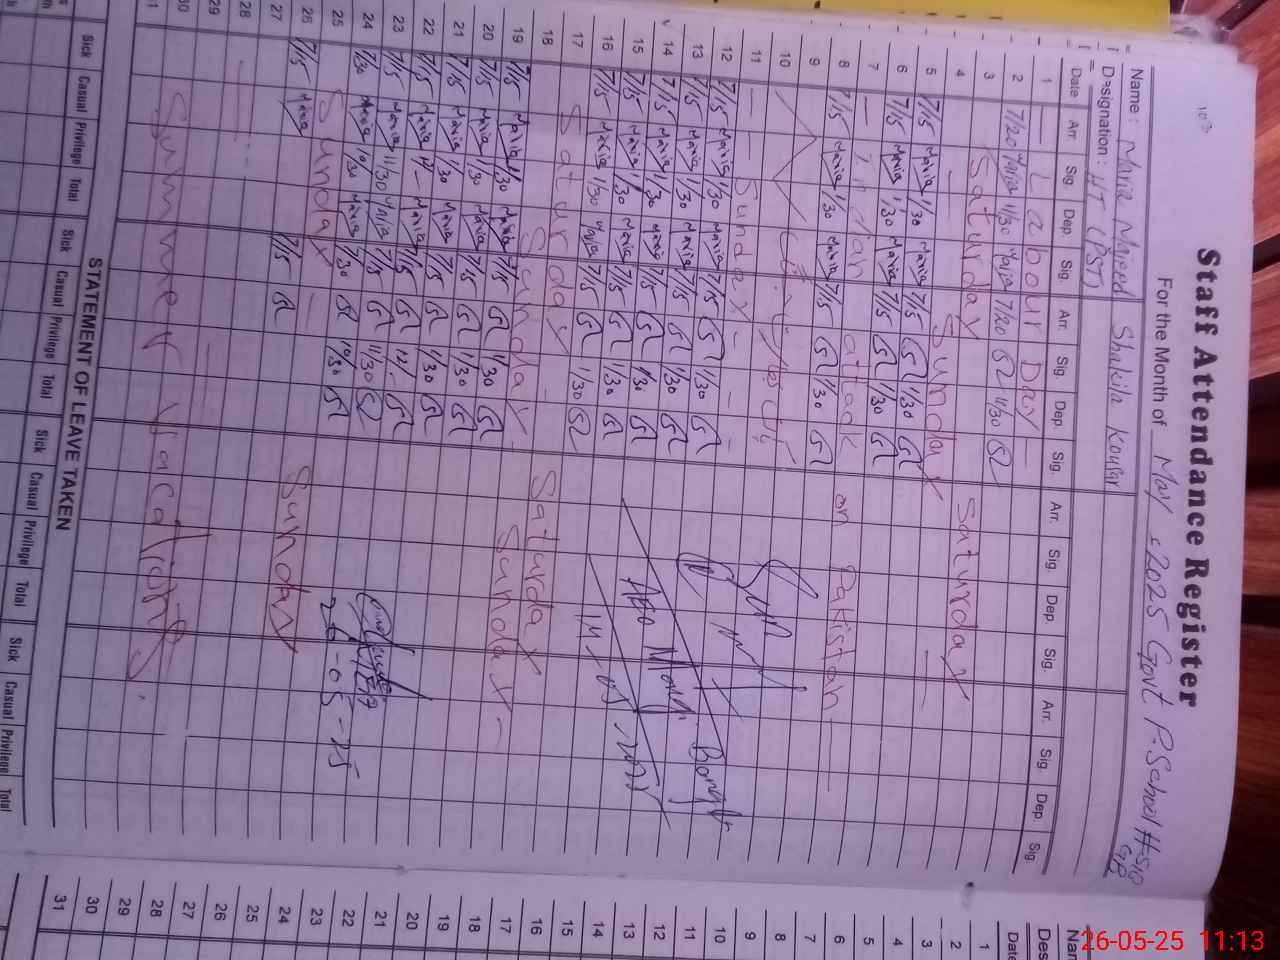 Staff Attendance Register
For the Month of May 2025 Govt P. School # 510 GB
Name : Maria Majeed Shakila Kousar
Designation : HT (PST)
Date Arr. Sig Dep. Sig. Arr. Sig. Dep. Sig. Arr. Sig. Dep. Sig. Arr. Sig. Dep Sig.
1 — Labour Day —
2 7/20 Maria 11/30 Maria 7/20 11/30
3 Saturday Saturday
4 — Sunday —
5 7/15 Maria 1/30 Maria 7/15 1/30
6 7/15 Maria 1/30 Maria 7/15 1/30
7 — Indian attack on Pakistan —
8 7/15 Maria 1/30 Maria 7/15 1/30
9
10
11 — Sunday —
12 7/15 Maria 1/30 Maria 7/15 1/30
13 7/15 Maria 1/30 Maria 7/15 1/30
14 7/15 Maria 1/30 Maria 7/15 1/30
15 7/15 Maria 1/30 Maria 7/15 1/30
16 7/15 Maria 1/30 Maria 7/15 1/30
17 Saturday Saturday
18 Sunday Sunday
19 7/15 Maria 1/30 Maria 7/15 1/30
20 7/15 Maria 1/30 Maria 7/15 1/30
21 7/15 Maria 1/30 Maria 7/15 1/30
22 7/15 Maria Maria 7/15
23 7/15 Maria 11/30 Maria 7/15 11/30
24 7/30 Maria 10/30 Maria 7/30 10/30
25 Sunday Sunday
26 7/15 Maria 7/15
27
28
29
30 Summer vacations.
31
STATEMENT OF LEAVE TAKEN
Sick Casual Privilege Total Sick Casual Privilege Total Sick Casual Privilege Total Sick Casual Privilege Total
1
2
3
4
5
6
7
8
9
10
11
12
13
14
15
16
17
18
19
20
21
22
23
24
25
26
27
28
29
30
31
26-05-25 11:13